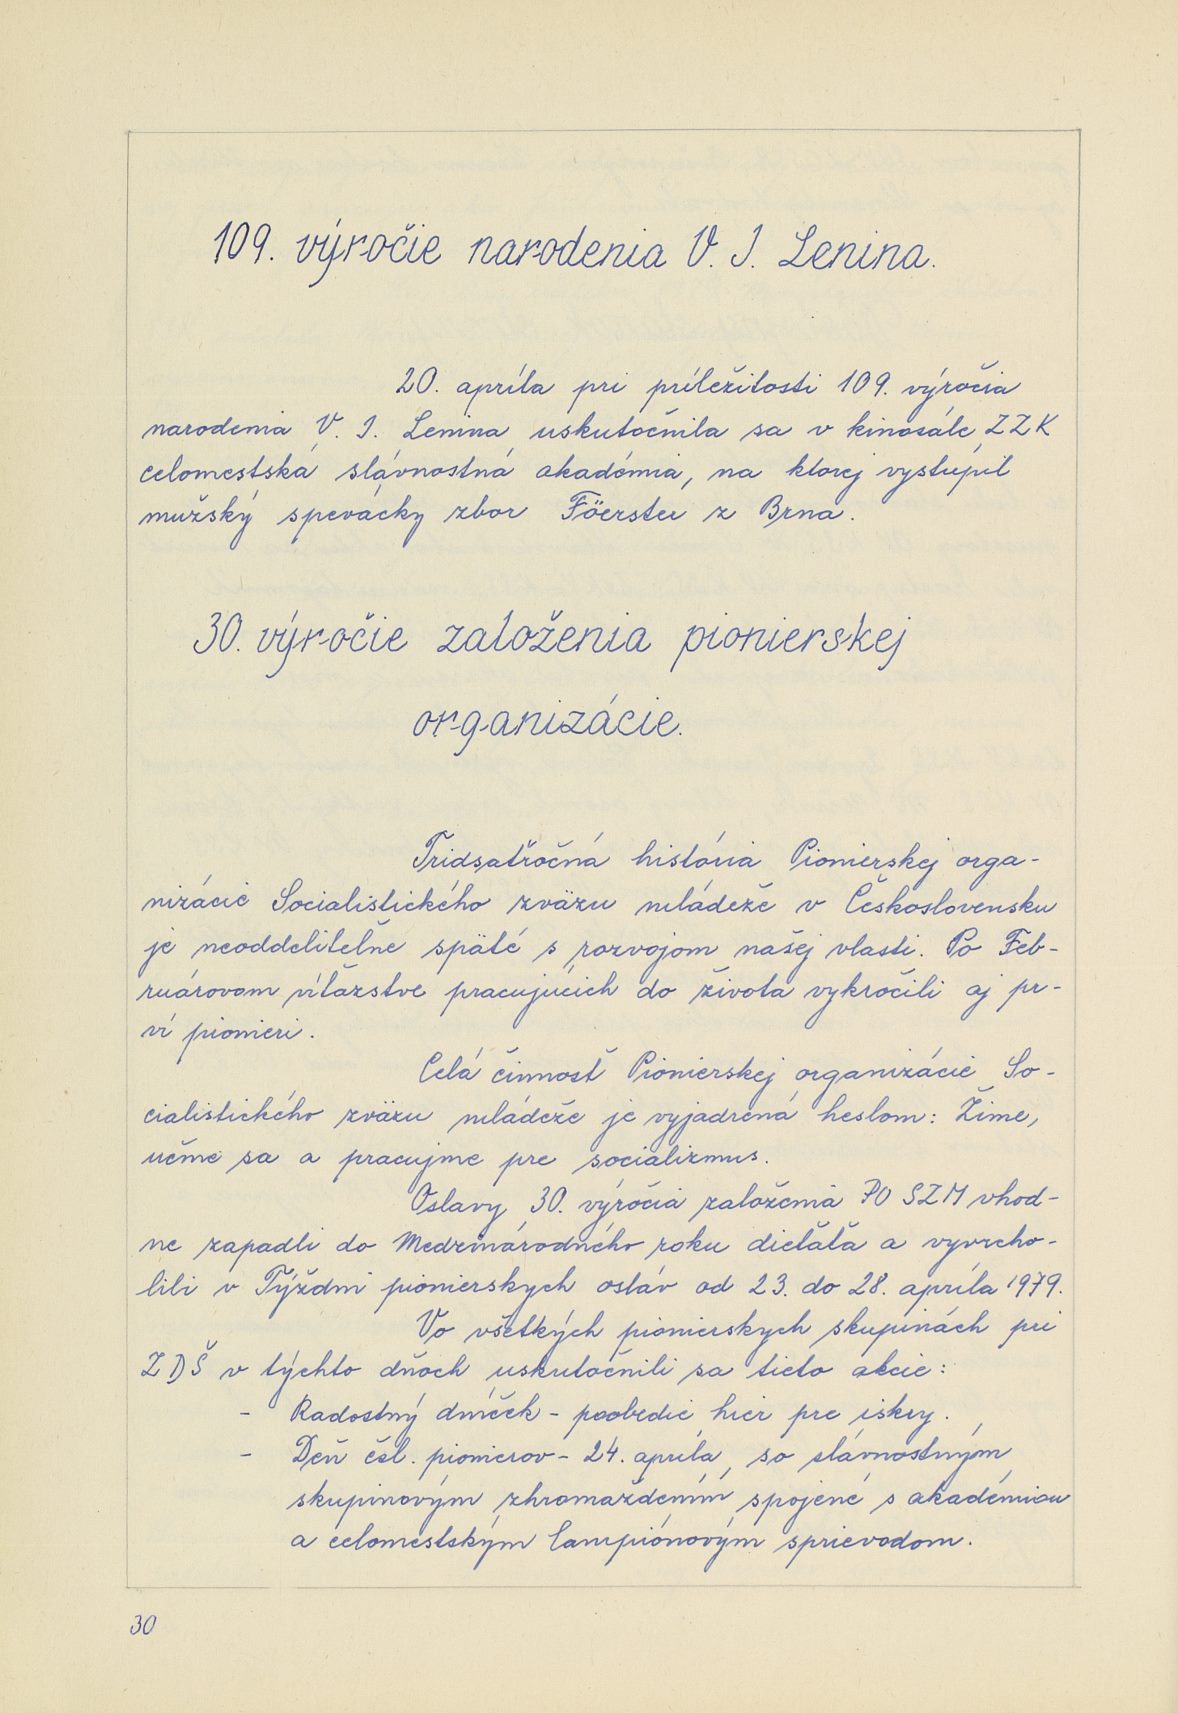 109. výročie narodenia V. I. Lenina.
20. apríla pri príležitosti 109. výročia
narodenia V. I. Lenina uskutočnila sa v kinosále ZZK
celomestská slávnostná akadémia, na ktorej vystúpil
mužský spevácky zbor Föerster z Brna.
30. výročie založenia pionierskej
organizácie.
Tridsaťročná história Pionierskej orga-
nizácie Socialistického zväzu mládeže v Československu
je neoddeliteľne späté s rozvojom našej vlasti. Po Feb-
ruárovom víťazstve pracujúcich do života vykročili aj pr-
ví pionieri.
Celá činnosť Pionierskej organizácie So-
cialistického zväzu mládeže je vyjadrená heslom: Žime,
učme sa a pracujme pre socializmus.
Oslavy 30. výročia založenia PO SZM vhod-
ne zapadli do Medzinárodného roku dieťaťa a vyvrcho-
lili v Týždni pionierskych osláv od 23. do 28. apríla 1979.
Vo všetkých pionierskych skupinách pri
ZDŠ v týchto dňoch uskutočnili sa tieto akcie:
- Radostný dníček - poobedie hier pre iskry.
- Deň čsl. pionierov - 24. apríla, so slávnostným
skupinovým zhromaždením spojené s akadémiou
a celomestským lampiónovým sprievodom.
30